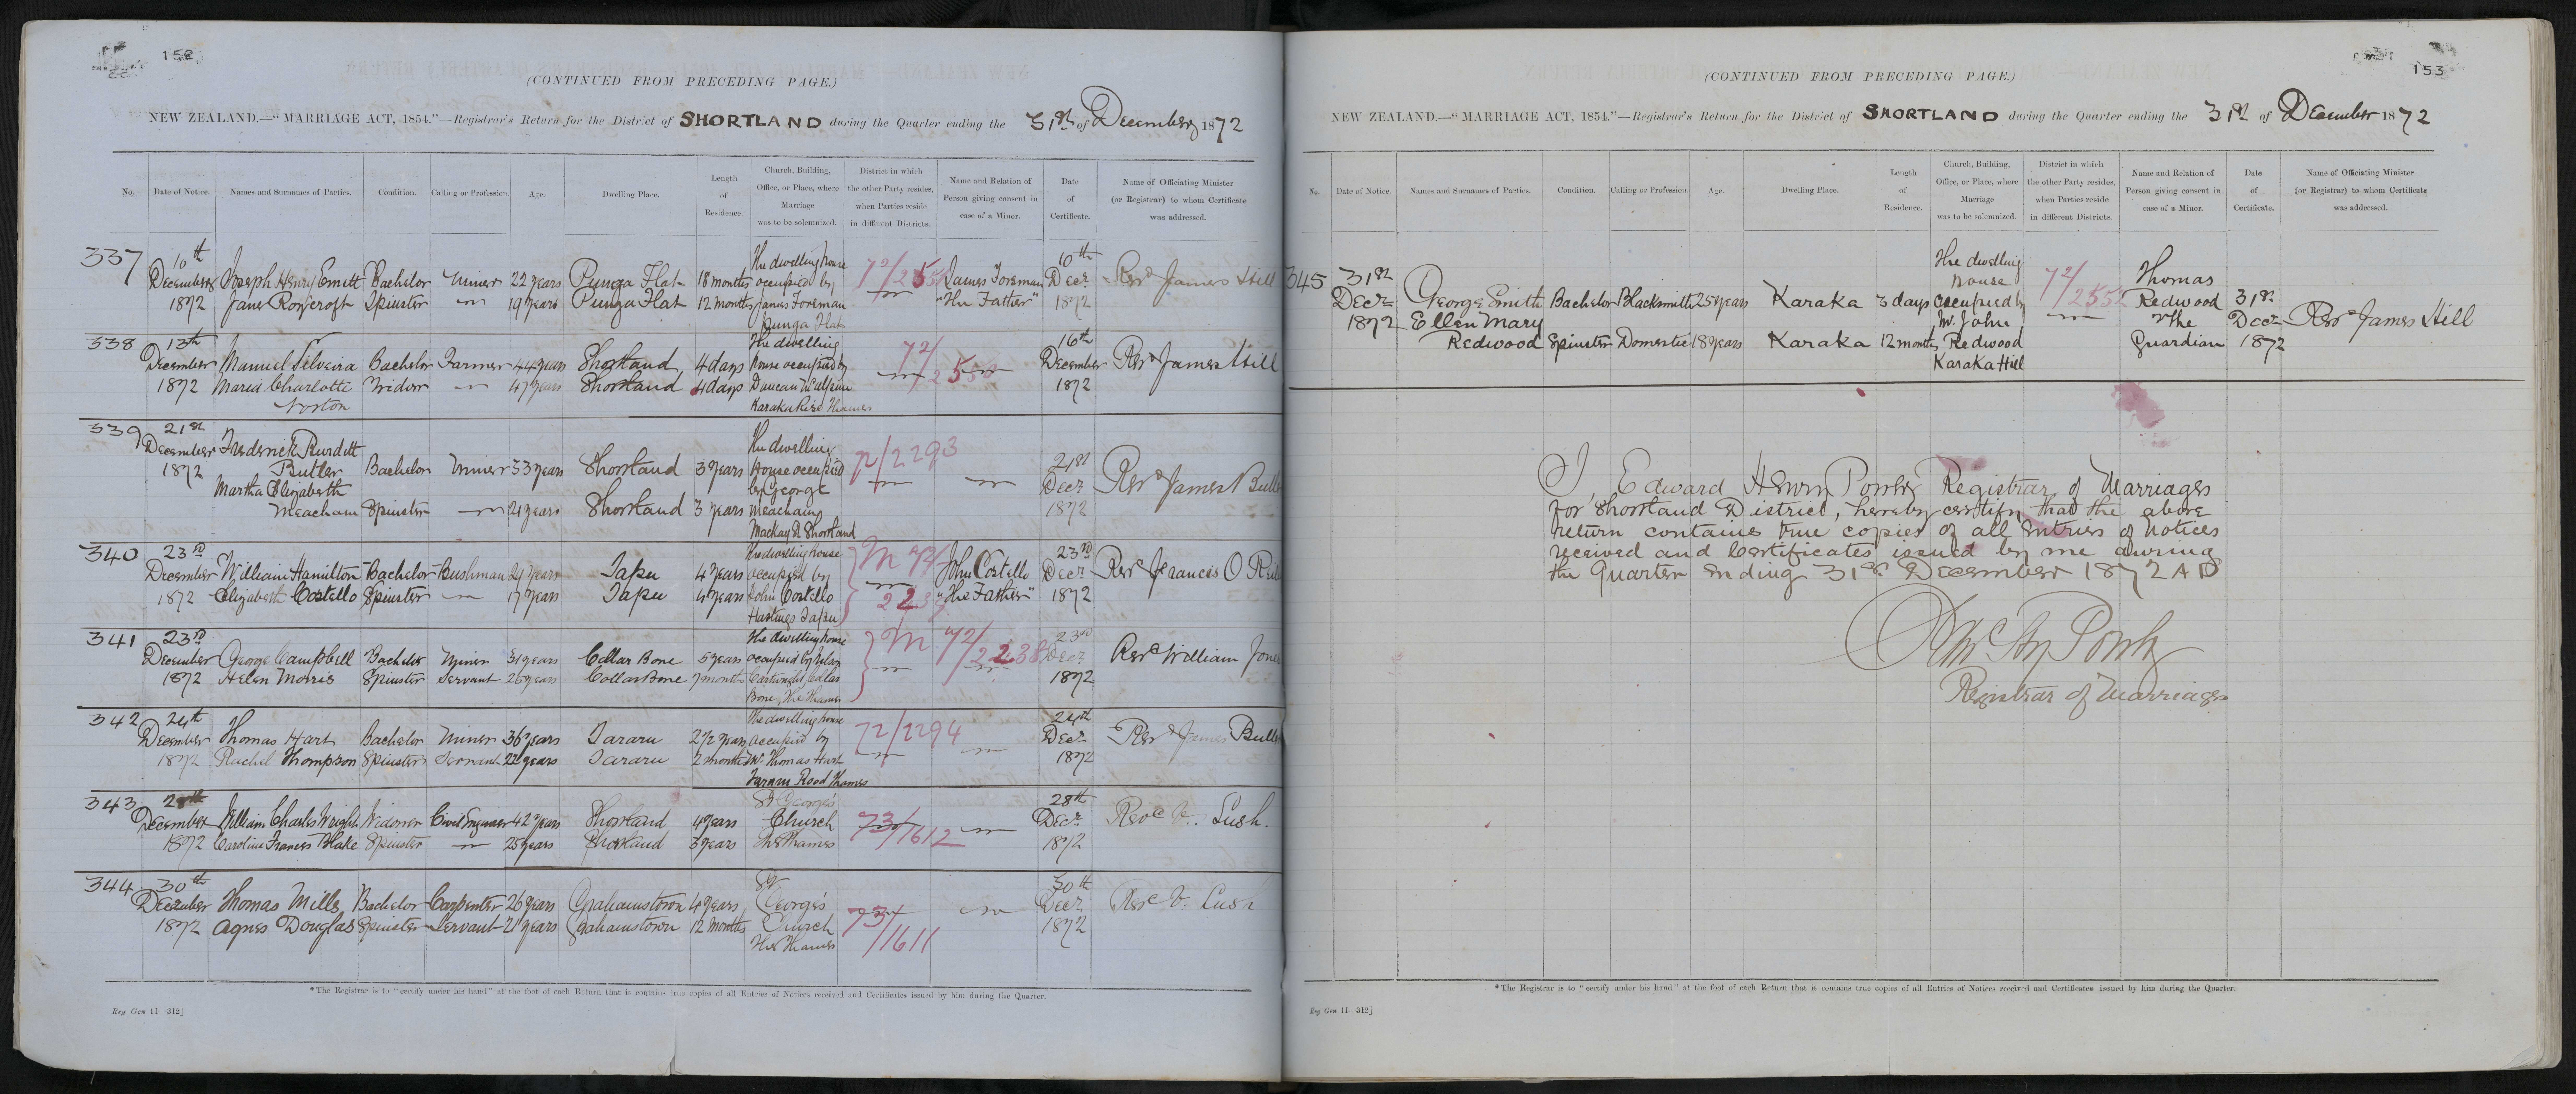 152
(CONTINUED FROM PRECEDING PAGE.)
NEW ZEALAND.—"MARRIAGE ACT, 1854."—Registrar's Return for the District of SHORTLAND during the Quarter ending the 31st of December 1872
No. Date of Notice. Names and Surnames of Parties. Condition. Calling or Profession. Age. Dwelling Place. Length of Residence. Church, Building, Office, or Place, where Marriage was to be solemnized. District in which the other Party resides, when Parties reside in different Districts. Name and Relation of Person giving consent in case of a Minor. Date of Certificate. Name of Officiating Minister (or Registrar) to whom Certificate was addressed.
337 10th December 1872
Joseph Henry Emett Bachelor Miner 22 years Punga Flat 18 months
Jane Roycroft Spinster 19 years Punga Flat 12 months
The dwelling house occupied by James Foreman Punga Flat
James Foreman "The Father" 10th Decr 1872 Revd James Hill
338 13th December 1872
Manuel Silveira Bachelor Farmer 44 years Shortland 4 days
Maria Charlotte Norton Widow 47 years Shortland 4 days
The dwelling house occupied by Duncan McAlpine Karaka Rise Thames
72/255
16th December 1872 Revd James Hill
339 21st December 1872
Frederick Burdett Butler Bachelor Miner 33 years Shortland 3 years
Martha Elizabeth Meacham Spinster 21 years Shortland 3 years
The dwelling House occupied by George Meacham Mackay St Shortland
72/2293
21st Decr 1872 Revd James Bull
340 23rd December 1872
William Hamilton Bachelor Bushman 24 years Tapu 4 years
Elizabeth Costello Spinster 17 years Tapu 4 years
The dwelling house occupied by John Costello Hastings Tapu
M 72/223
John Costello "The Father" 23rd Decr 1872 Revd Francis O
341 23rd December 1872
George Campbell Bachelor Miner 31 years Collar Bone 5 years
Helen Morris Spinster Servant 25 years Collar Bone 7 months
The dwelling house occupied by Cartwright Collar Bone, The Thames
M 72/2238
23rd Decr 1872 Revd William Jone
342 24th December 1872
Thomas Hart Bachelor Miner 36 years Tararu 2 1/2 years
Rachel Thompson Spinster Servant 22 years Tararu 2 months
The dwelling house occupied by Mr. Thomas Hart Tararu Road Thames
72/2294
24th Decr 1872 Revd James Bull
343 28th December 1872
William Charles Wright Widower Civil Engineer 42 years Shortland 4 years
Caroline Frances Blake Spinster 25 years Shortland 3 years
St George's Church The Thames
73/1612
28th Decr 1872 Revd V. Lush.
344 30th December 1872
Thomas Mills Bachelor Carpenter 26 years Grahamstown 4 years
Agnes Douglas Spinster Servant 21 years Grahamstown 12 months
St George's Church The Thames
73/1611
30th Decr 1872 Revd V. Lush
*The Registrar is to "certify under his hand" at the foot of each Return that it contains true copies of all Entries of Notices received and Certificates issued by him during the Quarter.
Reg Gen 11—312]
153
(CONTINUED FROM PRECEDING PAGE.)
NEW ZEALAND.—"MARRIAGE ACT, 1854."—Registrar's Return for the District of SHORTLAND during the Quarter ending the 31st of December 1872
No. Date of Notice. Names and Surnames of Parties. Condition. Calling or Profession. Age. Dwelling Place. Length of Residence. Church, Building, Office, or Place, where Marriage was to be solemnized. District in which the other Party resides, when Parties reside in different Districts. Name and Relation of Person giving consent in case of a Minor. Date of Certificate. Name of Officiating Minister (or Registrar) to whom Certificate was addressed.
345 31st Decr 1872
George Smith Bachelor Blacksmith 25 years Karaka 3 days
Ellen Mary Redwood Spinster Domestic 18 years Karaka 12 months
The dwelling house occupied by Mr. John Redwood Karaka Hill
72/255
Thomas Redwood The Guardian 31st Decr 1872 Revd James Hill
I, Edward Henry Power Registrar of Marriages
for Shortland District, hereby certify that the above
return contains true copies of all entries of notices
received and Certificates issued by me during
the Quarter ending 31st December 1872 AD
Registrar of Marriages
*The Registrar is to "certify under his hand" at the foot of each Return that it contains true copies of all Entries of Notices received and Certificates issued by him during the Quarter.
Reg Gen 11—312]